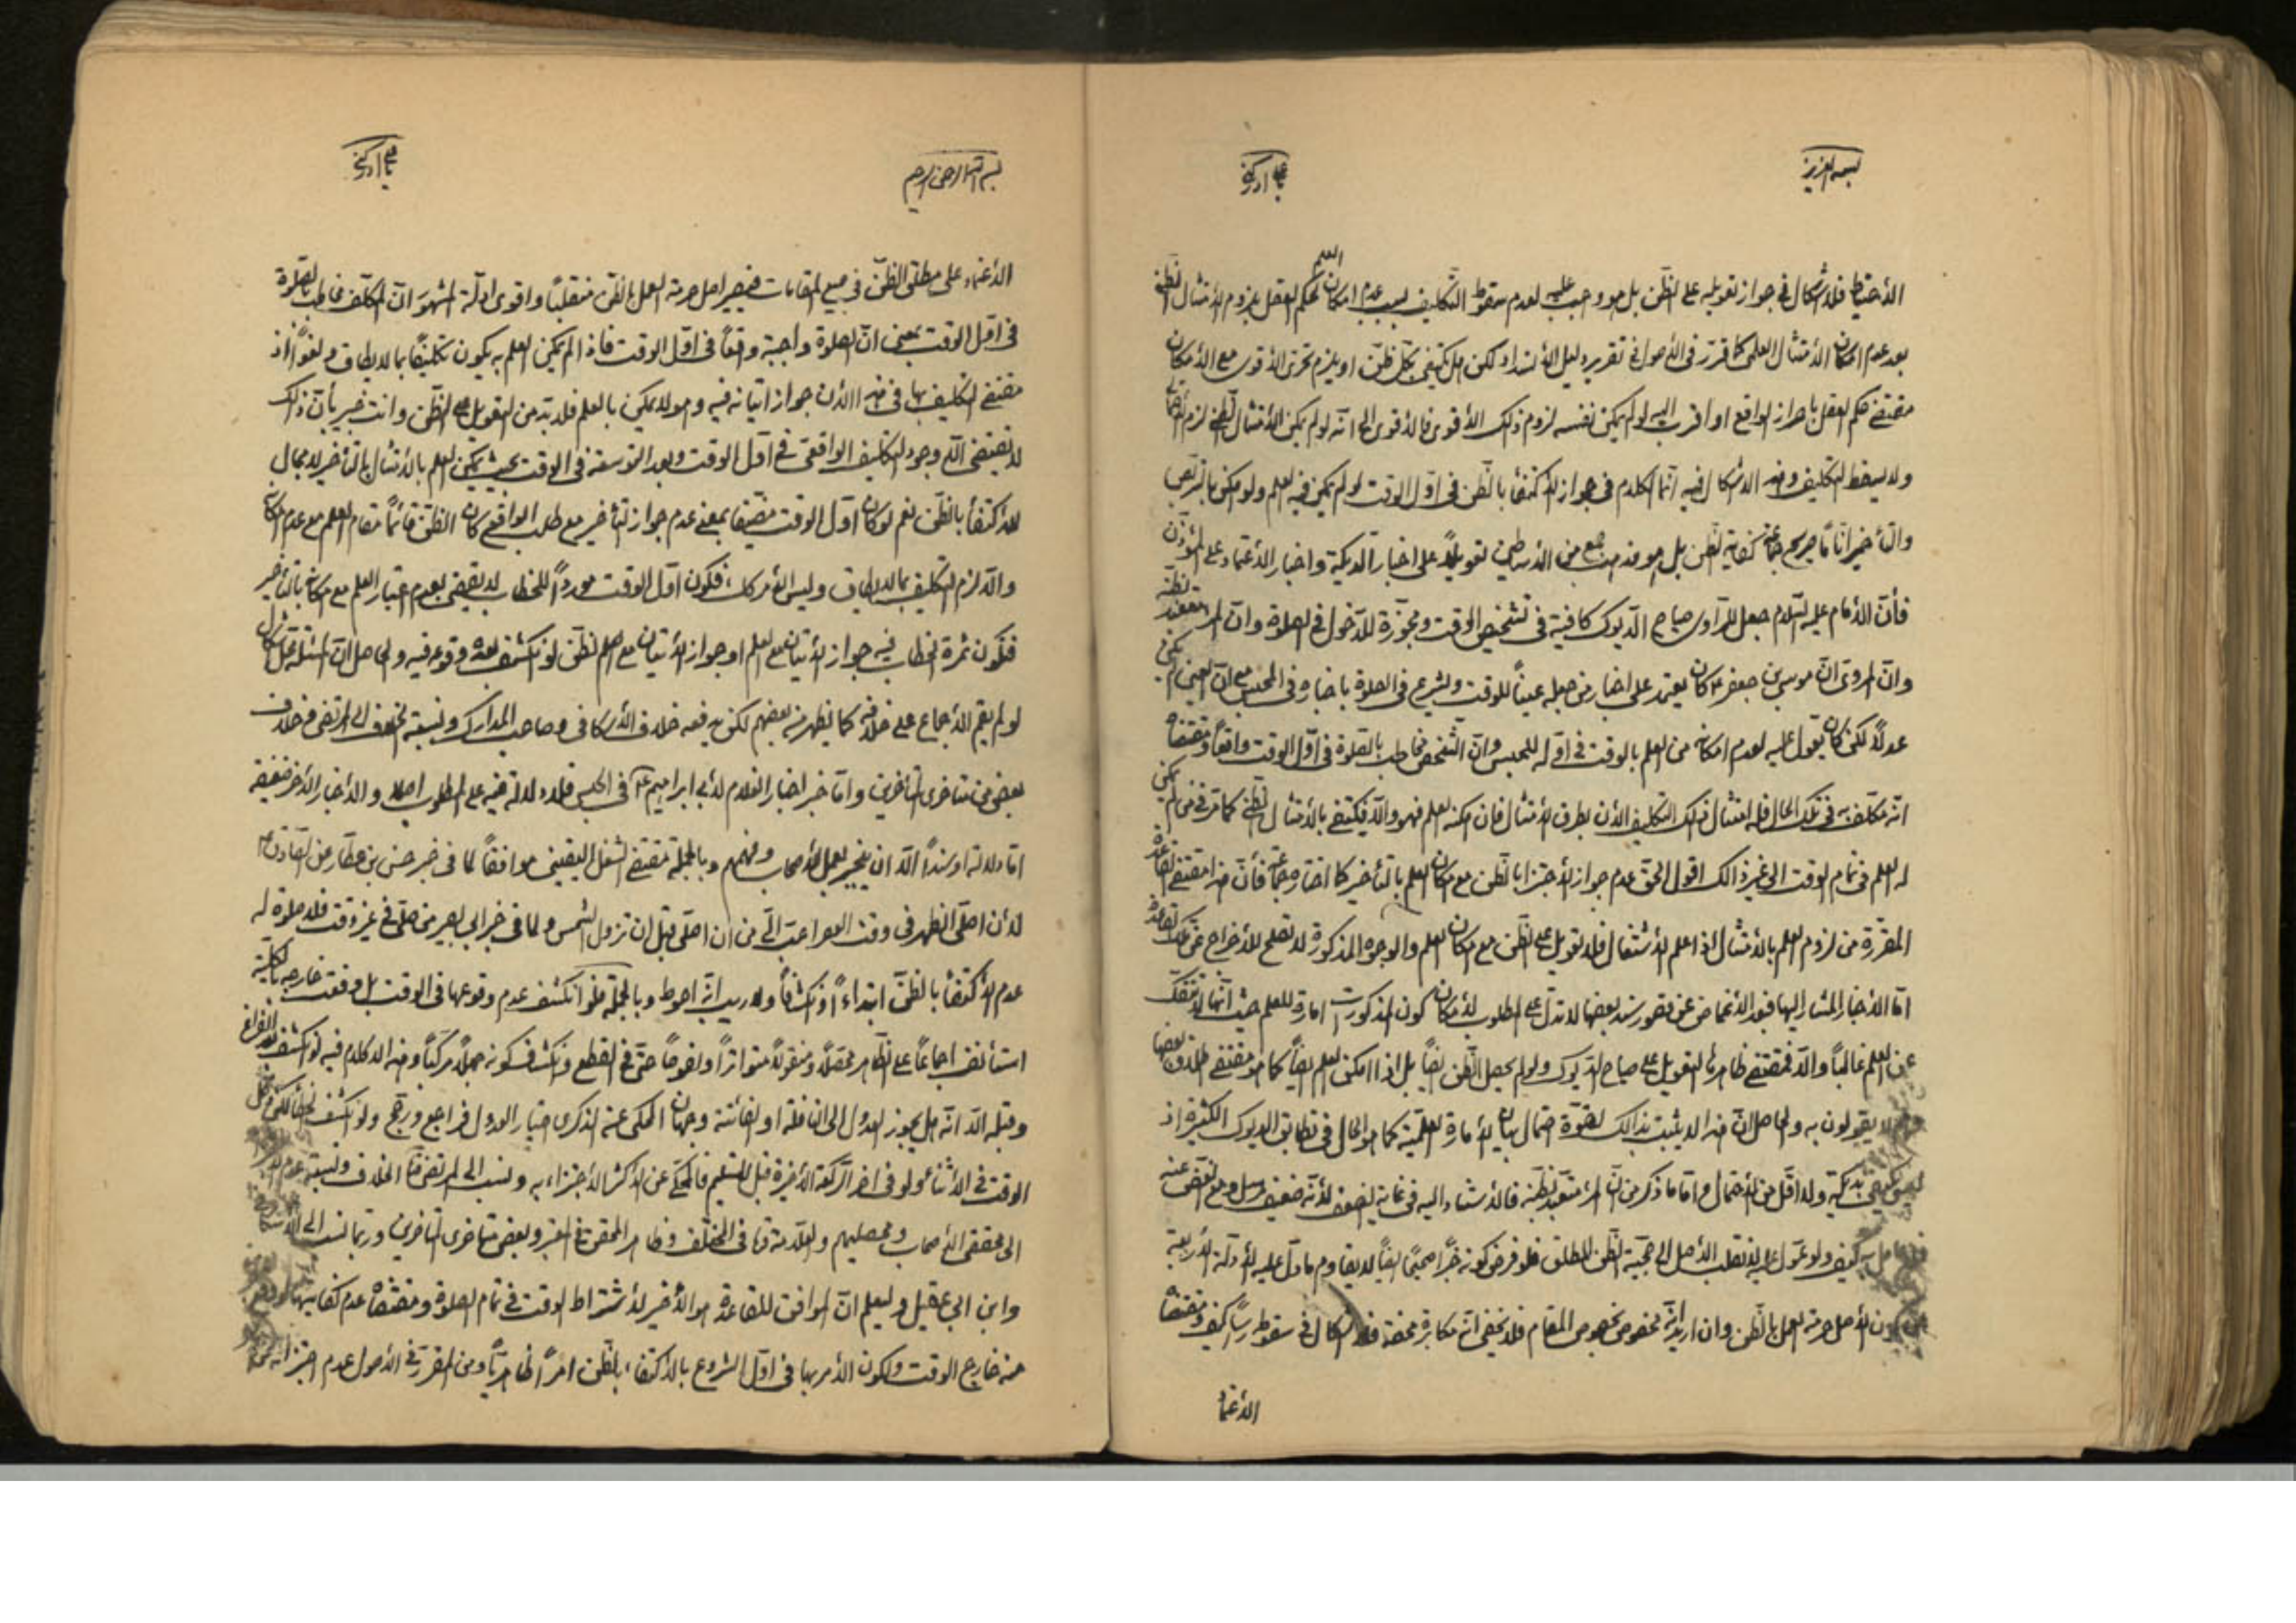 بسمه العزيز
يا علي ادركني
الاحتياط فلا اشكال في جواز تعويله على الظن بل هو وجب عليه لعدم سقوط التكليف بسبب عدم امكان العلم لحكم العقل بلزوم الامتثال الظني
بعد عدم امكان الامتثال العلمي كما قرر في الاصول في تقرير دليل الانسداد لكن هل يكتفي بكل ظن او يلزم تحري الاقوى مع الامكان
مقتضى حكم العقل باحراز الواقع او اقرب اليه لو لم يمكن نفسه لزوم ذلك الاقوى فالاقوى الى انه لو لم يمكن الامتثال الظني لزم
ولا يسقط التكليف وهذا لا اشكال فيه انما الكلام في جواز الاكتفاء بالظن في اول الوقت لو لم يمكن فيه العلم ولو امكن بالتربص
والتأخير اناً ما صريح جماعة كفاية الظن بل هو مذهب جمع من الاساطين تعويلاً على اخبار الديكة واخبار الاعتماد على المؤذن
فان الامام عليه السلام جعل للراوي صياح الديوك كافية في تشخيص الوقت ومجوزة للدخول في الصلوة وان المرء متعبد بظنه
وان المروي ان موسى بن جعفر ع كان يعتمد على اخبار من جعله عيناً للوقت ويشرع في الصلوة باخباره في الحبس مع ان العين لم يكن
عدلاً لكن كان يعول عليه لعدم امكانه من العلم بالوقت في اوله للحبس وان الشخص مخاطب بالصلوة في اول الوقت واقعاً ومقتضاه
انه مكلف به في تلك الحال فله امتثال ذلك التكليف الان بطرق الامتثال فان امكنه العلم فهو والا فيكتفى بالامتثال الظني كما مر في من لم يمكن
له العلم في تمام الوقت الى غير ذالك اقول الحق عدم جواز الاجتزا بالظن مع امكان العلم بالتأخير كما اختاره جماعة فان هذا مقتضى القاعدة
المقررة من لزوم العلم بالامتثال اذا علم الاشتغال فلا تعويل على الظن مع امكان العلم والوجوه المذكورة لا تصلح للاخراج عن تلك القاعدة
اما الاخبار المشار اليها فبعد الاغماض عن قصور سند بعضها لا تدل على المطلوب لامكان كون المذكورات امارة للعلم حيث انها لا تنفك
عن العلم غالباً والا فمقتضى ظاهرها التعويل على صياح الديوك ولو لم يحصل الظن ايضاً بل اذا امكن العلم ايضاً كما هو مقتضى اطلاق بعضها
لا يقولون به والحاصل ان هذا لا يثبت بذالك لقوة احتمال بيان الامارة العلمية كما هو الحال في تطابق الديوك الكثيرة اذ
بديكة ولا اقل من الاحتمال واما ما ذكر من ان المرء متعبد بظنه فالاستناد اليه في غاية الضعف لانه ضعيف مرسل ومع الغض عنه
كيف ولو عول عليه لانقلب الاصل الى حجية الظن المطلق فلو فرض كونه خبراً صحيحاً ايضاً لا يقاوم ما دل عليه الادلة الاربعة
من كون الاصل حرمة العمل بالظن وان اريد انه مخصوص بخصوص المقام فلا يخفى انه مكابرة محضة فلا اشكال في سقوطه رأساً كيف ومقتضاه
الاعتماد
بسم الله الرحمن الرحيم
يا علي ادركني
الاعتماد على مطلق الظن في جميع المقامات فيصير اصل حرمة العمل بالظن منقلباً واقوى ادلة المشهور ان المكلف مخاطب بالصلوة
في اول الوقت بمعنى ان الصلوة واجبة واقعاً في اول الوقت فاذا لم يمكن العلم به يكون تكليفاً بما لا يطاق ولغواً اذ
مقتضى التكليف بها في هذا الان جواز اتيانه فيه وهو لا يمكن بالعلم فلا بد من التعويل على الظن وانت خبير بان ذلك
لا يقتضي الا وجود التكليف الواقعي في اول الوقت وبعد التوسعة في الوقت بحيث يمكن العلم بالامتثال بالتأخير لا مجال
للاكتفاء بالظن نعم لو كان اول الوقت مضيقاً بمعنى عدم جواز التأخير مع طلب الواقع كان الظن قائماً مقام العلم مع عدم امكانه
والا لزم التكليف بما لا يطاق وليس الامر كك فكون اول الوقت مورداً للخطاب لا يقضي بعدم اعتبار العلم مع امكانه بالتأخير
فتكون ثمرة الخطاب فيه جواز الاتيان مع العلم او جواز الاتيان مع الظن لو انكشف بعده وقوعه فيه والحاصل ان المسئلة محل اشكال
لو لم يقم الاجماع على خلافه كما يظهر من بعضهم لكن يدفعه خلاف الاسكافي وصاحب المدارك ونسبة الخلاف الى المرتضى وخلاف
بعض من متاخري المتاخرين واما خبر اخبار الغلام لابي ابراهيم ع في الحبس فلا دلالة فيه على المطلوب اصلا والاخبار الاخر ضعيفة
اما دلالة او سنداً الا ان ينجبر بعمل الاصحاب وفهمهم وبالجملة مقتضى الشغل اليقيني موافقاً لما في خبر حسن بن عطار عن الصادق ع
لان اصلي الظهر في وقت العصر احب الي من ان اصلي قبل ان تزول الشمس ولما في خبر ابي بصير من صلى في غير وقت فلا صلوة له
عدم الاكتفاء بالظن ابتداءً او انكشافاً ولا ريب انه احوط وبالجملة فلو انكشف عدم وقوعها في الوقت بل وقعت خارجه بالكلية
استأنف اجماعاً على الظاهر محصلاً ومنقولاً متواتراً ونصوصاً حتى في القطع وانكشاف كونه جهلاً مركباً وهذا لا كلام فيه لو انكشف بعد الفراغ
وقبله الا انه هل يجوز العدول الى النافلة او الفائتة وجهان المحكي عن الذكرى اختيار العدول فراجع ورجح ولو انكشف
الوقت في الاثناء ولو في اخر الركعة الاخيرة قبل التسليم فالمحكي عن الاكثر الاجتزاء به ونسب الى المرتضى الخلاف ونسبة عدم
الى محققي الاصحاب ومحصليهم والعلامة في المختلف وظاهر المحقق في المعتبر وبعض متاخري المتاخرين وربما نسب الى الاسكافي
وابن ابي عقيل وليعلم ان الموافق للقاعدة هو الاخير لاشتراط الوقت في تمام الصلوة ومقتضاه عدم كفايتها
منه خارج الوقت ولكون الامر بها في اول الشروع بالاكتفاء بالظن امراً ظاهرياً ومن المقرر في الاصول عدم اجتزاء